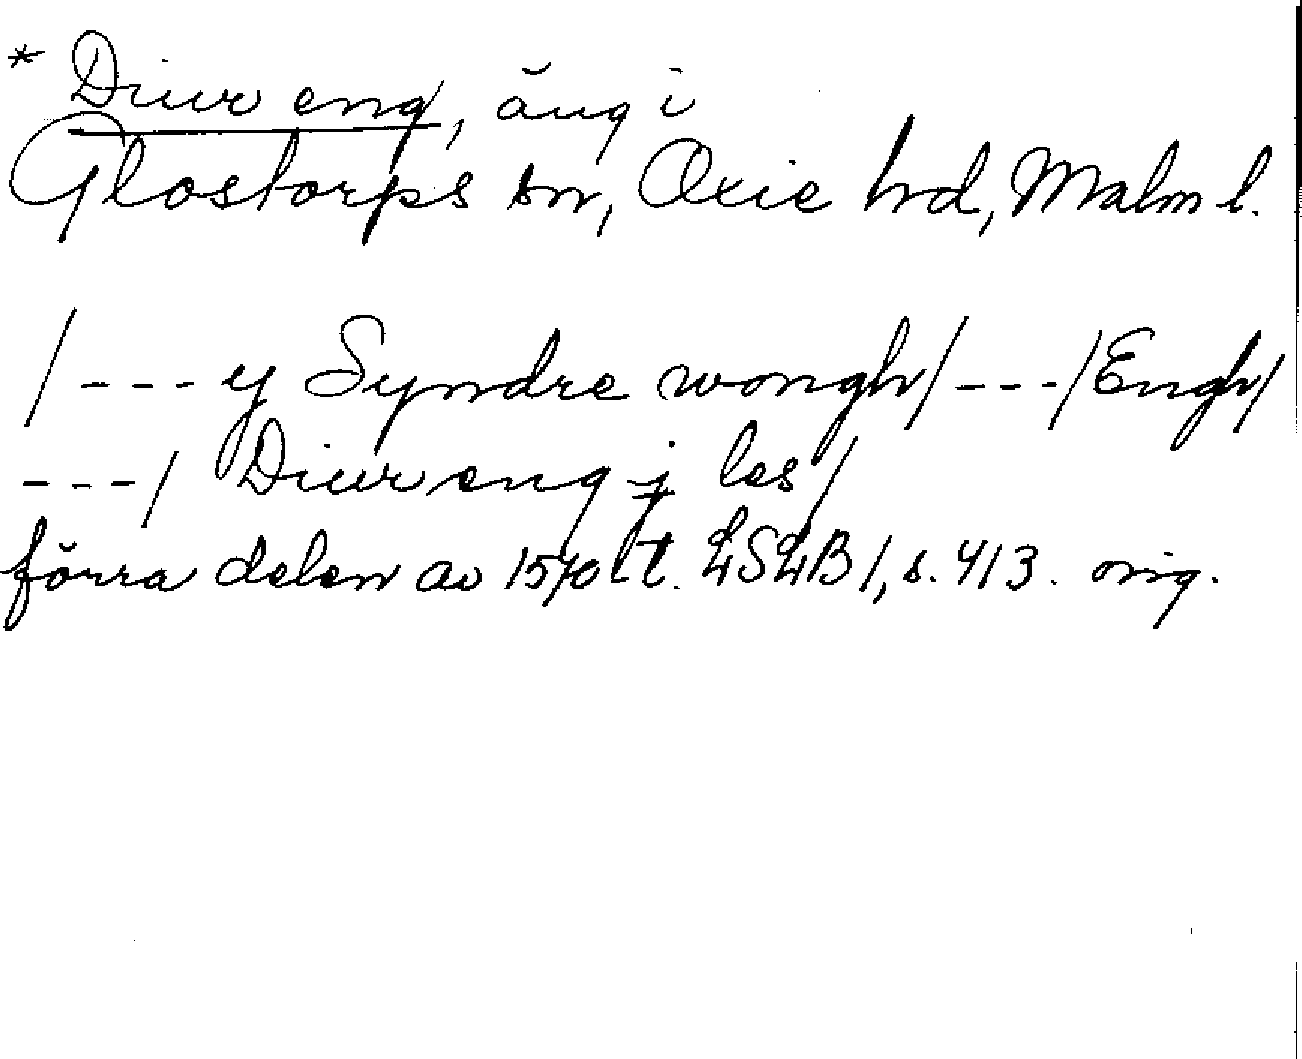 * Diur eng, äng i
Glostorps sn, Oxie hd, Malm l.
/--- y Syndre wongh/---/Engh/
---/ Diur eng j les/
förra delen av 1570 t. LSLB 1, s. 413. orig.